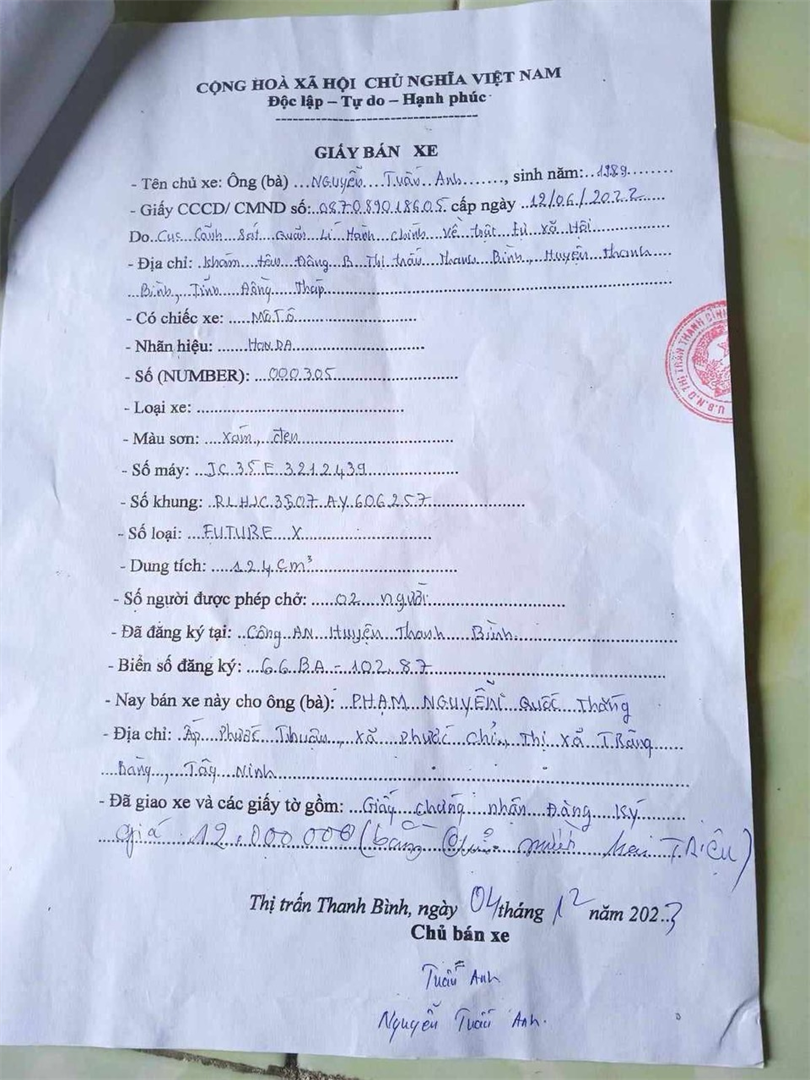 CỘNG HOÀ XÃ HỘI CHỦ NGHĨA VIỆT NAM
Độc lập – Tự do – Hạnh phúc
GIẤY BÁN XE
- Tên chủ xe: Ông (bà) ...Nguyễn Tuấn Anh......, sinh năm: 1989
- Giấy CCCD/ CMND số: 087089018605 cấp ngày 12/06/2022
Do Cục Cảnh Sát Quản Lí Hành Chính Về Trật Tự Xã Hội
- Địa chỉ: Khóm Tân Đông B Thị trấn Thanh Bình, Huyện Thanh
Bình, Tỉnh Đồng Tháp
- Có chiếc xe: Mô Tô
- Nhãn hiệu: HONDA
- Số (NUMBER): 000305
- Loại xe:
- Màu sơn: Xám, đen
- Số máy: JC35E3212439
- Số khung: RLHJC3507AY606257
- Số loại: FUTURE X
- Dung tích: 124 cm³
- Số người được phép chở: 02 người
- Đã đăng ký tại: Công AN Huyện Thanh Bình
- Biển số đăng ký: 66BA-102.87
- Nay bán xe này cho ông (bà): PHẠM NGUYỄN Quốc Thắng
- Địa chỉ: Ấp Phước Thuận, xã Phước Chỉ, Thị xã Trảng
Bàng, Tây Ninh
- Đã giao xe và các giấy tờ gồm: Giấy chứng nhận Đăng Ký
giá 12.000.000 (bằng chữ mười hai Triệu)
Thị trấn Thanh Bình, ngày 04 tháng 12 năm 2023
Chủ bán xe
Tuấn Anh
Nguyễn Tuấn Anh.
U.B.N.D THỊ TRẤN THANH BÌNH